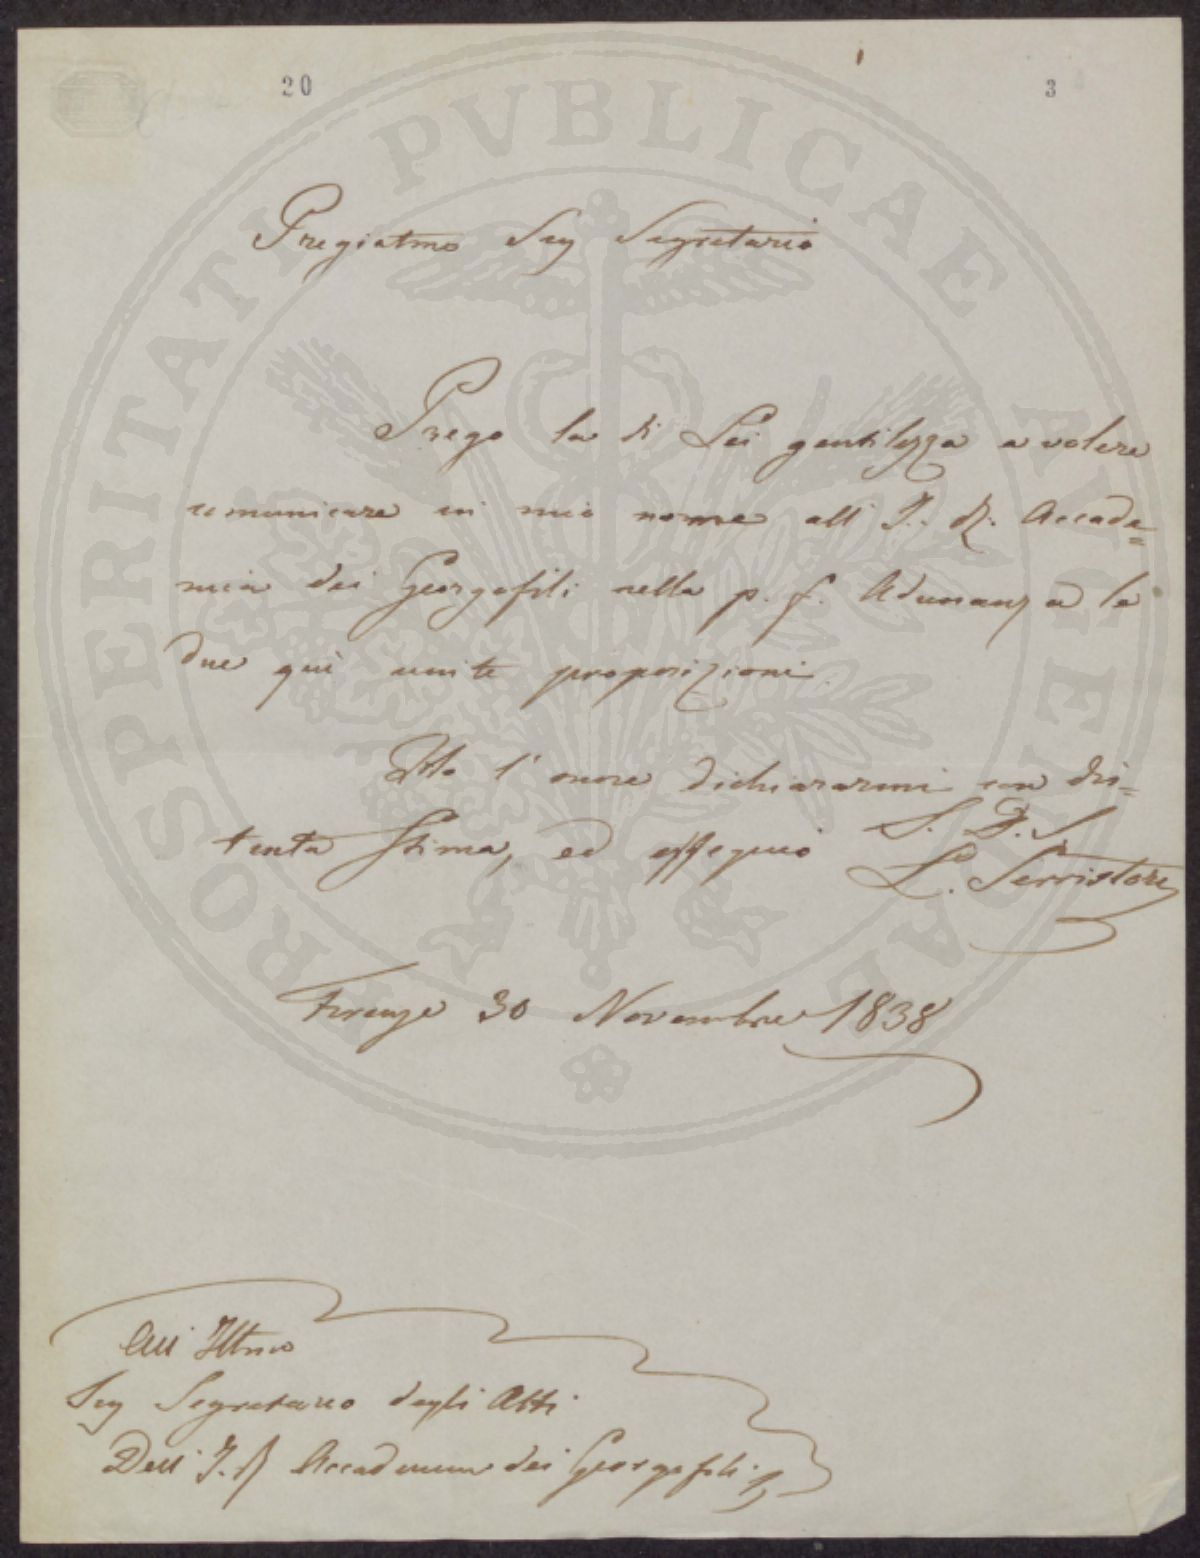 20
3
PROSPERITATI PVBLICAE AVGENDAE
Pregiatmo Sig Segretario
Prego la di Lei gentilezza a volere
comunicare in mio nome all' I. R. Accade=
mia dei Georgofili nella p. f. Adunanza le
due quì unite proposizioni.
Ho l'onore dichiararmi con dis=
tinta stima, ed ossequio
S. D. S.
L. Serristori
Firenze 30 Novembre 1838
All' Illmo
Sig Segretario degli Atti
Dell' I. R Accademia dei Georgofili